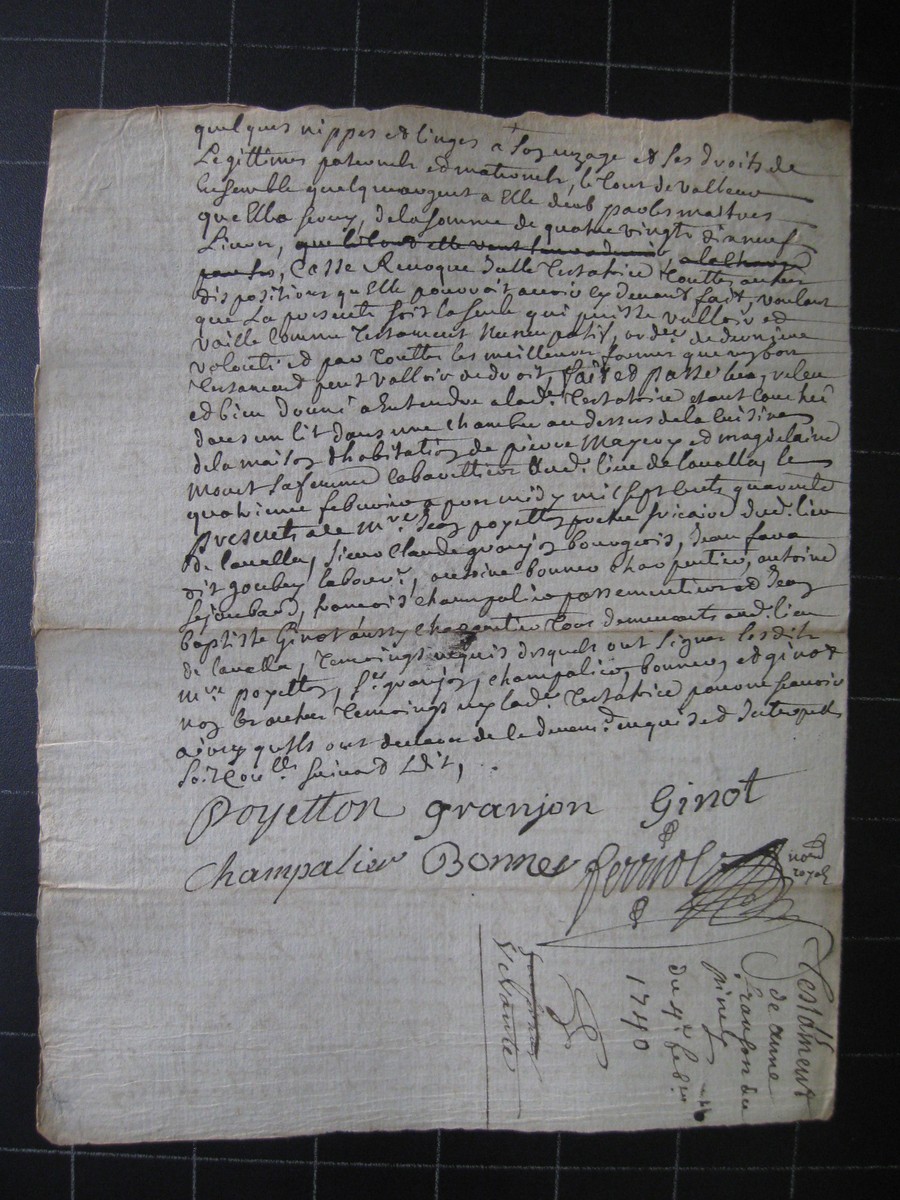 quelques nippes et linges a son uzage et ses droits de
Legittimes paternels et maternels, le tout de valleur
Ensemble quelque argent a Elle deub par les maitres
quElle a servy, de la somme de quatre vingts dix neuf
Livres, que
, Casse Revoque ladte Testatrice Touttes autres
dispositions quElle pouvoit avoir cy devant fait, voulant
que La presente soit la seule qui puisse valloir et
vaille comme Testament Nuncupatif, ou de derniere
volonté et par touttes les meilleures formes que un bon
Testament peut valloir de droit, fait et passé leu, releu
et bien donné a Entendre a lade Testatrice etant couchée
dans un lit dans une chambre au dessus de la cuisine
de la maison d'habitation de pierre Mayeux et magdelaine
Monet sa femme cabarettiers audt lieu de lavalla, le
quatrieme febvrier apres midy mil sept cents quarante
Presents a ce Mre Jean poyetton pretre vicaire dudt lieu
de lavalla, sieur Claude granjon bourgeois, Jean fara
dit goubey labour, antoine bonner charpentier, antoine
, francois champalier passementier et Jean
baptiste Ginot aussy charpentier tous demeurants audt lieu
de lavalla, temoings requis desquels ont signez lesdits
Mre poyetton, sr granjon, champalier, bonner, et ginot
non les autres temoings ny lade Testatrice pour ne scavoir
ainsy qu'ils ont declaré de ce deuemt enquis et Interpellés
soit Conllé suivant L'Edit,
Poyetton granjon Ginot
Champalier Bonner ferriol nore royal
Testament
de anne
françon du
pinet
du 4e febvr
1740